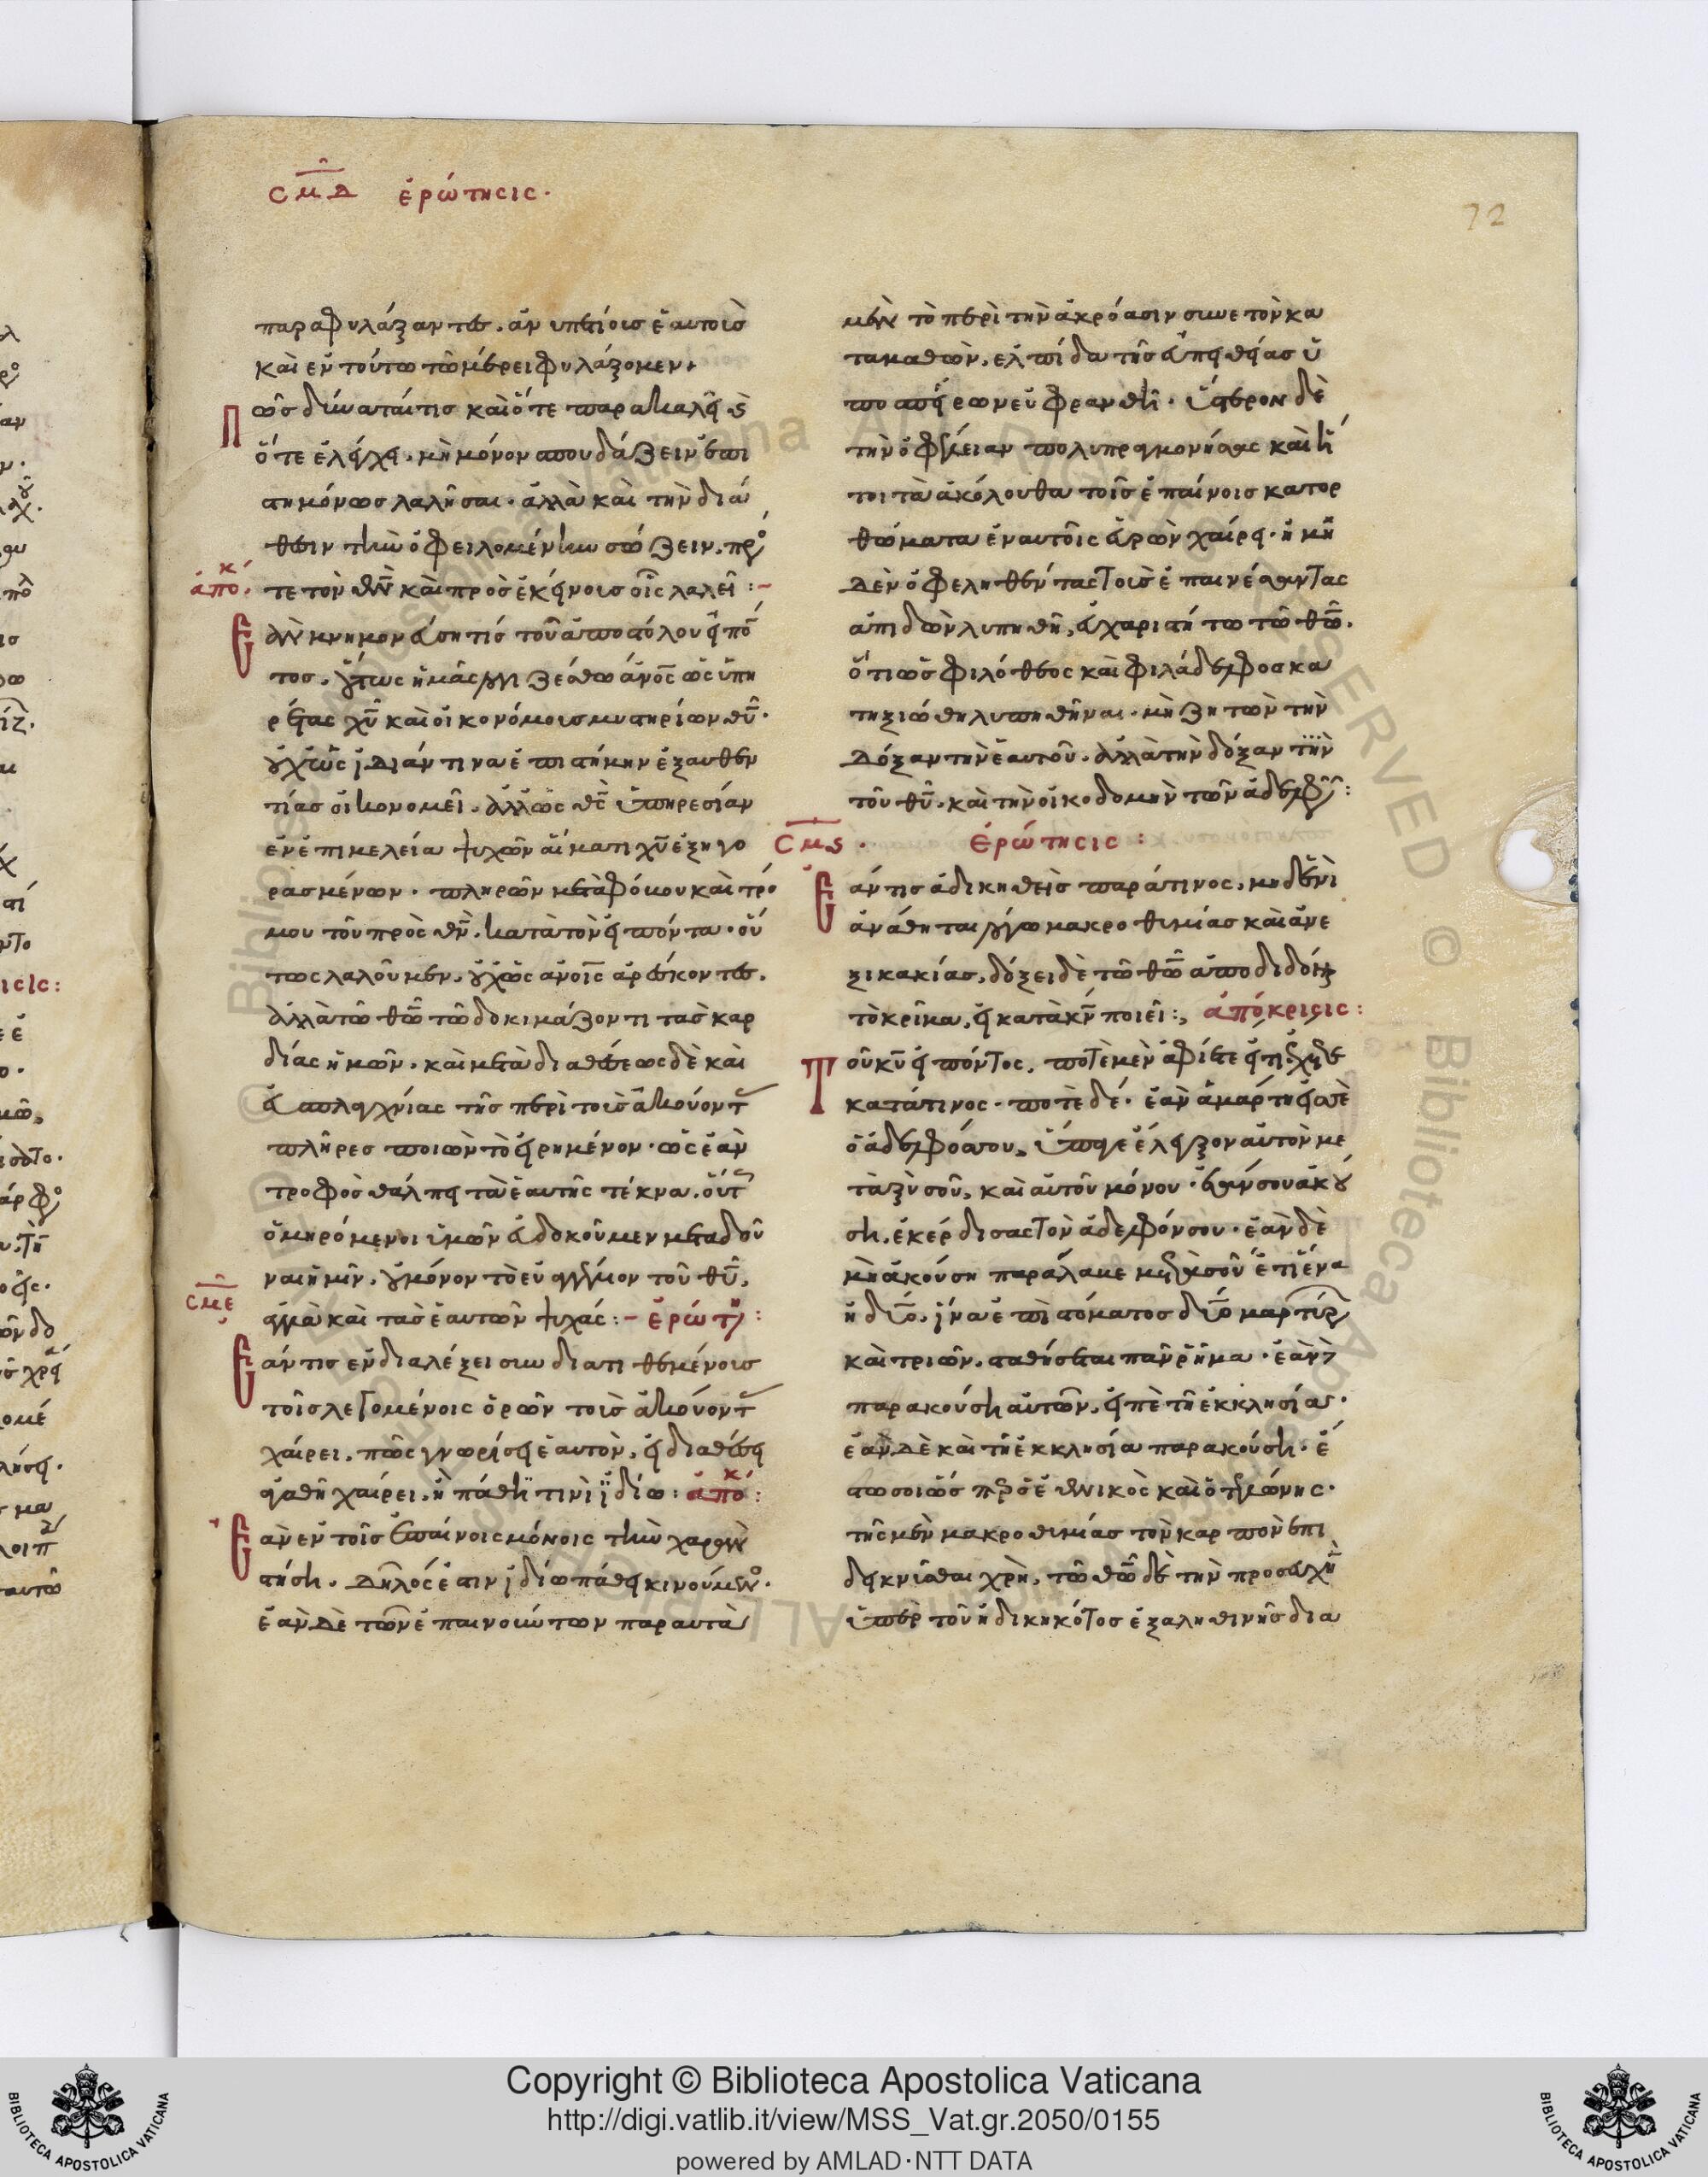 ϲμδ ἐρώτηϲιϲ·
72
παραφυλάξαντες, ἀνυπτίοις ἑαυτοὺς
καὶ ἐν τούτω τῶ μέρει φυλάξομεν.
Πῶς δύναταί τις καὶ ὅτε παρακαλεῖ καὶ
ὅτε ἐλέγχει, μὴ μόνον σπουδάζειν ἐπι
στημόνως λαλῆσαι· ἀλλὰ καὶ τὴν διά
θεσιν τὴν ὀφειλομένην σώζειν, πρό
ἀπόκ
τε τὸν θν καὶ πρὸς ἐκείνους οἷς λαλεῖ :-
Ἐὰν μνημονεύσητις τοῦ ἀποστόλου εἰπό
τος, οὕτως ἡμᾶς λογιζέσθω ἄνος ὡς ὑπη
ρέτας χυ καὶ οἰκονόμους μυστηρίων θυ·
οὐχ ὡς ἰδίαν τινα ἐπιστήμην ἐξ αυθεν
τίας οἰκονομεῖ, ἀλλ' ὡς θυ ὑπηρεσίαν
ἐν ἐπιμελεία ψυχῶν αἵματι χυ ἐξηγο
ρασμένων· πληρῶν μετὰ φόβου καὶ τρό
μου τοῦ πρὸς θν, κατὰ τὸν εἰπόντα· οὕ
τως λαλοῦμεν, οὐχ ὡς ἀνοις ἀρέσκοντες,
ἀλλὰ τῶ θω τῶ δοκιμάζοντι τὰς καρ
δίας ἡμῶν· καὶ μετὰ διαθέσεως δὲ καὶ
εὐσπλαγχνίας τῆς περὶ τοὺς ἀκούοντ
πλῆρες ποιῶν τὸ εἰρημένον· ὡς ἐὰν
τροφὸς θάλπει τὰ ἑαυτῆς τέκνα, οὕτ
ὁμηρόμενοι ὑμῶν εὐδοκοῦμεν μεταδοῦ
ναι ἡμῖν, οὐ μόνον τὸ εὐαγγέλιον τοῦ θυ,
ϲμε
ἀλλὰ καὶ τὰς ἑαυτῶν ψυχάς :- ἐρώτη :
Ἐάν τις ἐν διαλέξει συνδιατιθεμένοις
τοῖς λεγομένοις ὁρῶν τοὺς ἀκούοντ
χαίρει, πῶς γνωρίσει ἑαυτὸν, εἰ διαθέσει
ἀγαθῆ χαίρει, ἢ πάθη τινὶ ἰδίω : ἀπόκ :
Ἐὰν ἐν τοῖς ἐπαίνοις μόνοις τὴν χαρὰν
στήση, δῆλός ἐστιν ἰδίω πάθει κινούμενος·
ἐὰν δὲ τῶν ἐπαινούντων παραυτὰ
μὲν τὸ περὶ τὴν ἀκρόασιν συνετὸν κα
ταμαθὼν, ἐλπίδα τῆς εὐπειθείας ὑ
ποσπείρων εὐφρανθῆ· ὕστερον δὲ
τὴν ὠφέλειαν πολυπραγμονήσας καὶ ἤ
τοι τὰ ἀκόλουθα τοῖς ἐπαίνοις κατορ
θώματα ἐν αυτοῖς εὑρὼν χαίρει· ἢ μη
δὲν ὠφεληθέντας τοὺς ἐπαινέσαντας
ἀπιδὼν λυπηθῆ, εὐχαριστήτω τῶ θω.
ὅτι ὡς φιλόθεος καὶ φιλάδελφος κα
τηξιώθη λυπηθῆναι· μὴ ζητῶν τὴν
δόξαν τὴν ἑαυτοῦ, ἀλλὰ τὴν δόξαν τὴν
τοῦ θυ, καὶ τὴν οἰκοδομὴν τῶν ἀδελφῶν :
ϲμϛ. ἐρώτηϲιϲ :
Ἐάν τις ἀδικηθεὶς παρά τινος, μηδενὶ
ἀνάθηται λόγω μακροθυμίας καὶ ἀνε
ξικακίας, δόξει δὲ τῶ θω ἀποδιδόναι
τὸ κρῖμα, εἰ κατὰ κν ποιεῖ :, ἀπόκρισις :
Τοῦ κυ εἰπόντος, ποτὲ μὲν ἀφίετε εἴ τι ἔχετε
κατά τινος· ποτὲ δέ· ἐὰν ἁμάρτη εἰς σὲ
ὁ ἀδελφός σου, ὕπαγε ἔλεγξον αὐτὸν με
ταξὺ σοῦ, καὶ αὐτοῦ μόνου· ἐάν σου ἀκού
ση, ἐκέρδισας τὸν ἀδελφόν σου· ἐὰν δὲ
μὴ ἀκούση παράλαβε μετὰ σοῦ ἔτι ἕνα
ἢ δύο, ἵνα ἐπὶ στόματος δύο μαρτύρ
καὶ τριῶν, σταθήσεται πᾶν ῥῆμα· ἐὰν δὲ
παρακούση αὐτῶν, εἰπὲ τῆ ἐκκλησία·
ἐὰν δὲ καὶ τῆ ἐκκλησία παρακούση· ἔ
στω σοι ὥσπερ ὁ ἐθνικὸς καὶ ὁ τελώνης·
τῆς μὲν μακροθυμίας τὸν καρπὸν ἐπι
δείκνυσθαι χρὴ, τῶ θω δὲ τὴν προσευχὴν
ὑπὲρ τοῦ ἠδικηκότος ἐξ αληθινῆς δια
Copyright © Biblioteca Apostolica Vaticana
http://digi.vatlib.it/view/MSS_Vat.gr.2050/0155
powered by AMLAD·NTT DATA
BIBLIOTECA APOSTOLICA VATICANA
BIBLIOTECA APOSTOLICA VATICANA